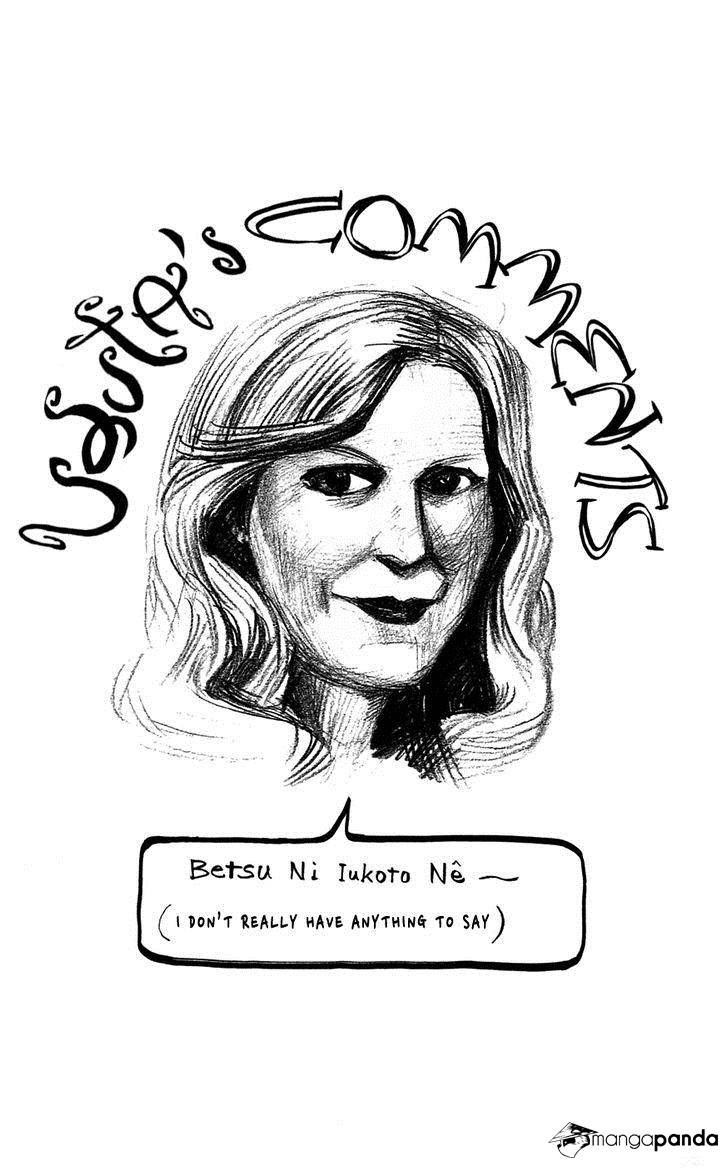 Yasuta's COMMENTS
Betsu Ni Iukoto Nê ~
(I DON'T REALLY HAVE ANYTHING TO SAY)
mangapanda